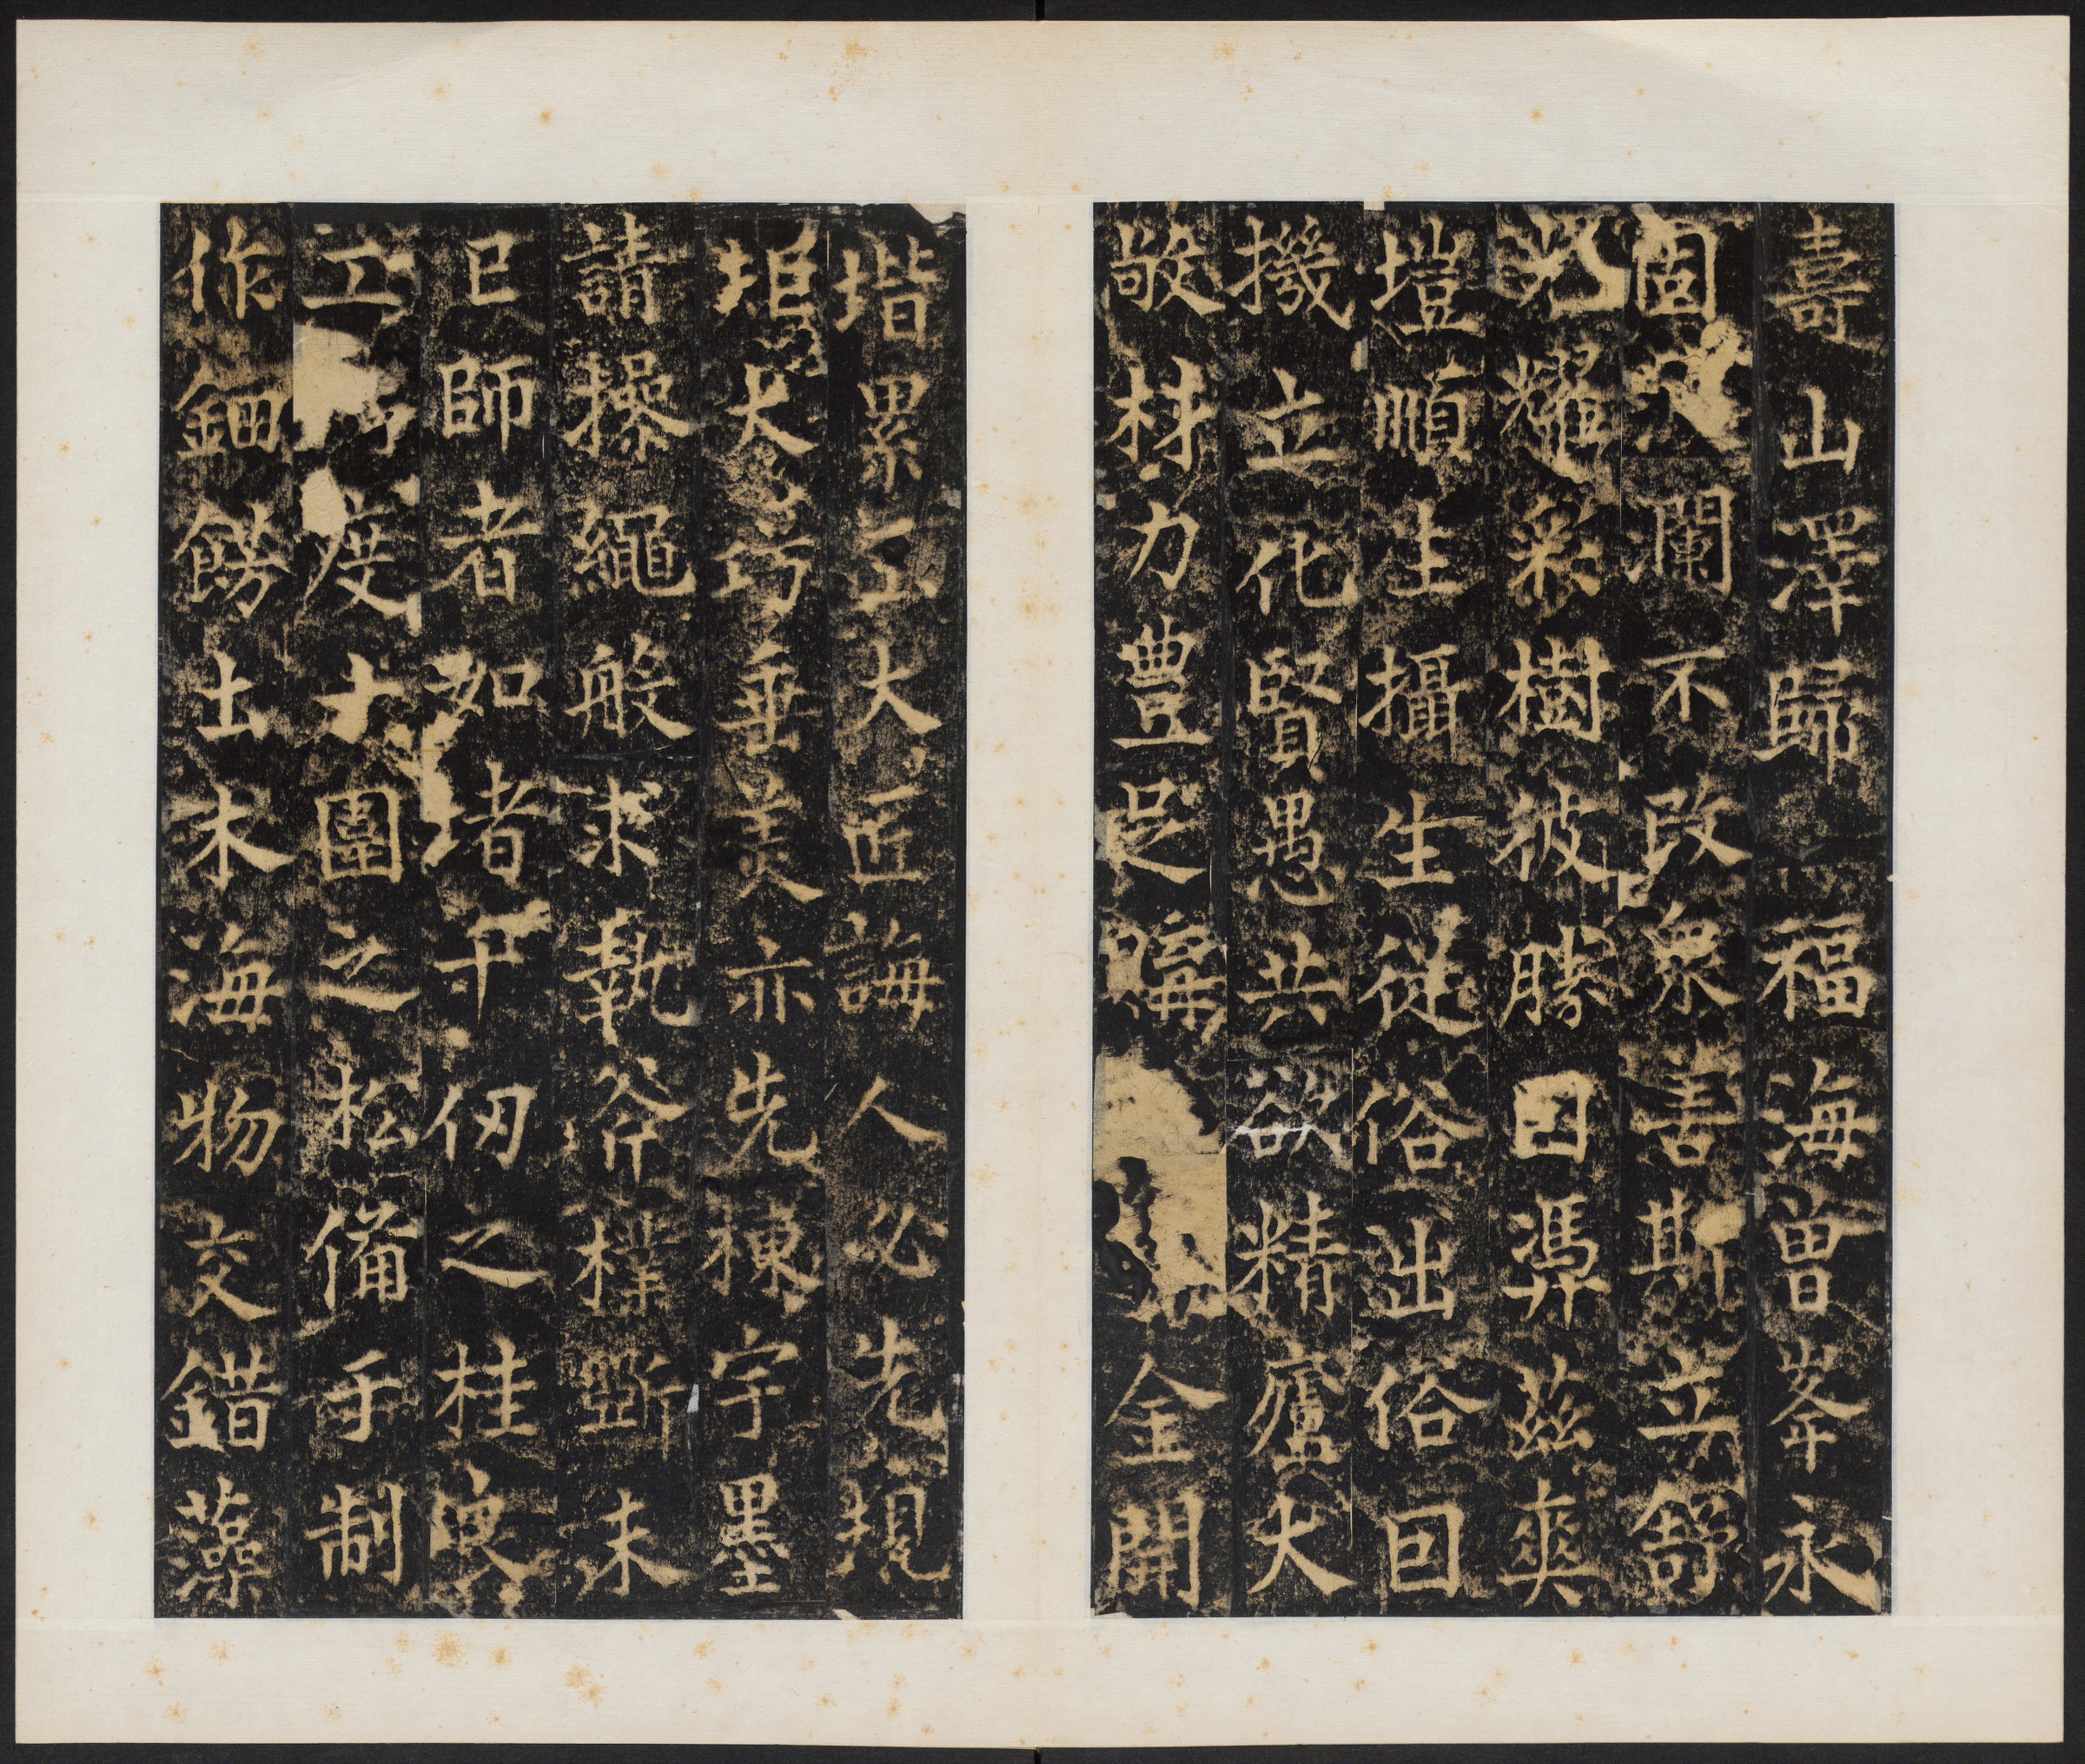 壽山澤歸福海曾峯永
固瀾不改衆善斯立舒
耀彩樹彼勝因馮茲爽
塏順生攝生從俗出俗因
機立化賢愚共欲精廬大
敞材力豐足購金開
堦累工大匠誨人必先規
矩大巧垂美亦先棟宇墨
請操繩般求執斧樸斲未
已師者如堵千仞之桂良
工度十圍之松備手制
作鈿餝土木海物交錯藻